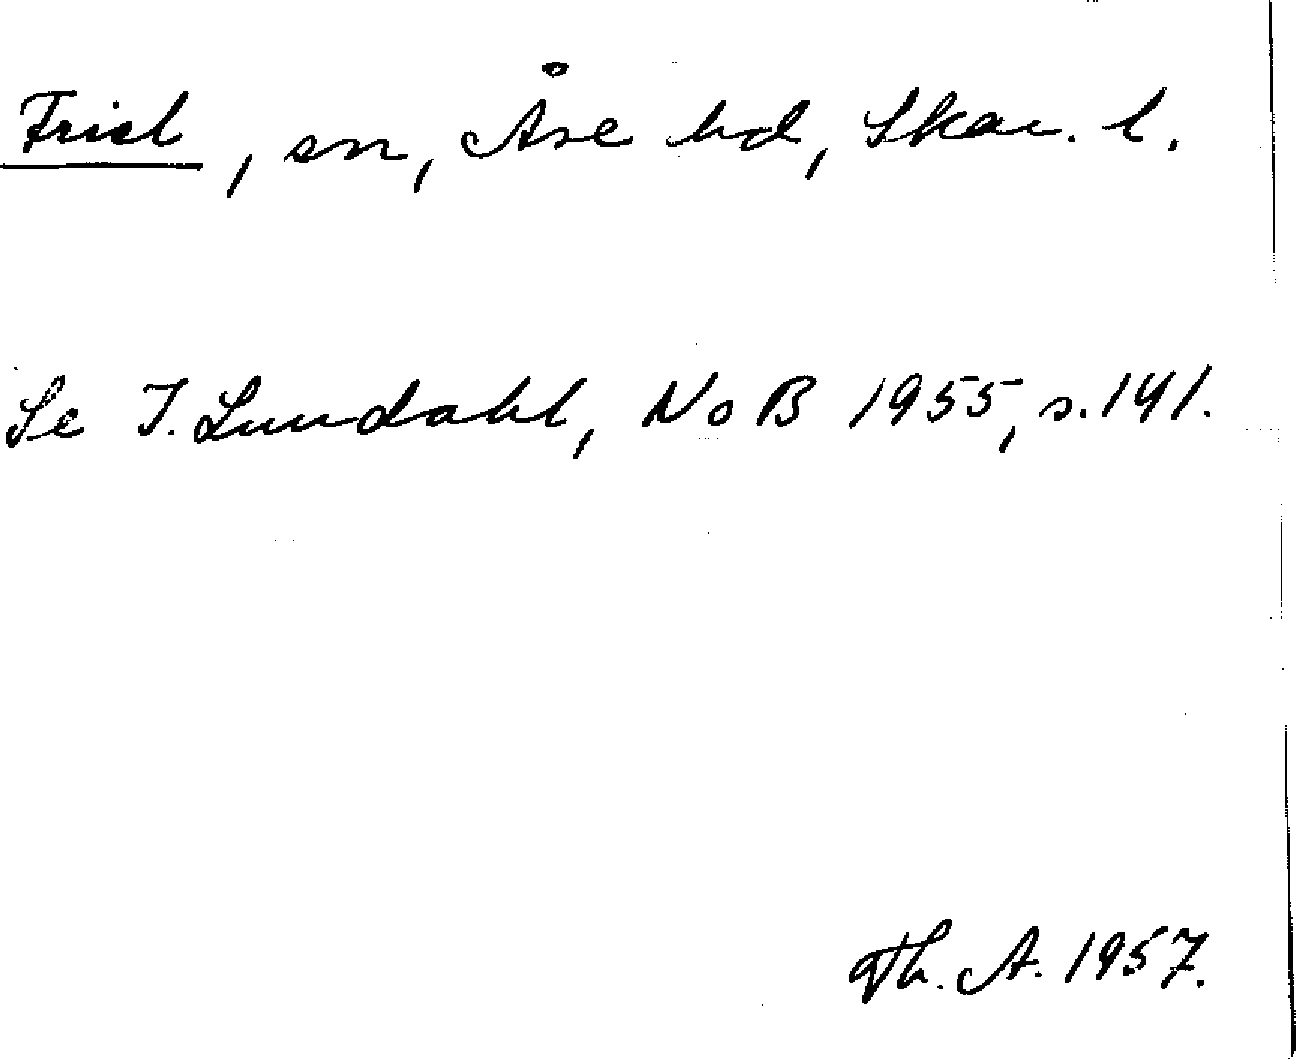 Friel, sn, Åse hd, Skar. l.
Se I. Lundahl, NoB 1955, s. 141.
Th. A. 1957.